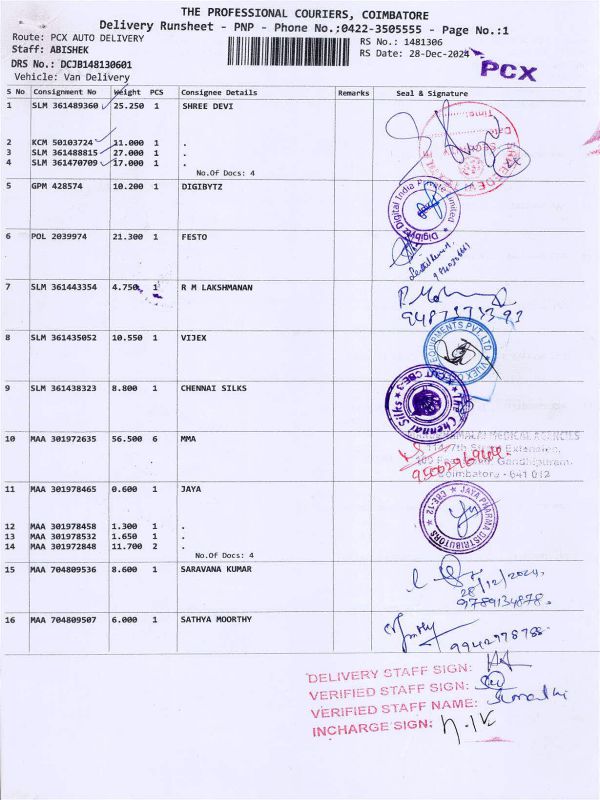 THE PROFESSIONAL COURIERS, COIMBATORE
Delivery Runsheet - PNP - Phone No.;0422-3505555 - Page No.:1
Route: PCX AUTO DELIVERY
Staff: ABISHEK
RS No.: 1481306
RS Date: 28-Dec-2024
DRS No.: DCJB148130601
Vehicle: Van Delivery
PCX
S No Consignment No Weight PCS Consignee Details Remarks Seal & Signature
1 SLM 361489360 25.250 1 SHREE DEVI
Time:
Date
2 KCM 50103724 11.000 1 .
3 SLM 361488815 27.000 1 .
4 SLM 361470709 17.000 1 .
No.Of Docs: 4
5 GPM 428574 10.200 1 DIGIBYTZ
Digibyte Digital India Private Limited
6 POL 2039974 21.300 1 FESTO
7 SLM 361443354 4.750 1 R M LAKSHMANAN
8 SLM 361435052 10.550 1 VIJEX
VIJEX EQUIPMENTS PVT. LTD
9 SLM 361438323 8.800 1 CHENNAI SILKS
The Chennai Silks
10 MAA 301972635 56.500 6 MMA
MEDICAL AGENCIES
7th Street Extension,
Gandhipuram,
Coimbatore - 641 012
11 MAA 301978465 0.600 1 JAYA
JAYA PHARMA DISTRIBUTORS CBE-12
12 MAA 301978458 1.300 1 .
13 MAA 301978532 1.650 1 .
14 MAA 301972848 11.700 2 .
No.Of Docs: 4
15 MAA 704809536 8.600 1 SARAVANA KUMAR
28/12/2024,
9789134878.
16 MAA 704809507 6.000 1 SATHYA MOORTHY
9942978788
DELIVERY STAFF SIGN:
VERIFIED STAFF SIGN:
VERIFIED STAFF NAME:
INCHARGE SIGN: